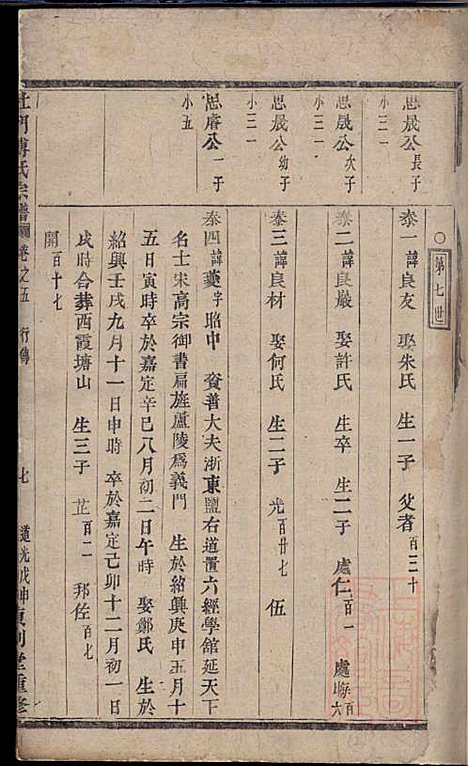 第七世
思晟公長子
小三一
泰一諱良友 娶朱氏 生一子 父耆百三十
思晟公次子
小三一
泰二諱良嚴 娶許氏 生卒 生二子 處仁百一 處 百六
思晟公幼子
小三一
泰三諱良材 娶何氏 生二子 光百廿七 伍
思睿公一子
小五
泰四諱蘷字昭中 資善大夫浙東鹽右道置六經學館延天下
名士宋高宗御書扁旌蘆陵為義門 生於紹興庚申五月十
五日寅時卒於嘉定辛巳八月初二日午時 娶鄭氏 生於
紹興壬戌九月十一日申時 卒於嘉定己卯十二月初一日
戌時合葬西霞塘山 生三子 芷百二 邦佐百七
開百十七
門傅氏宗譜 卷之五 行傳 七 道光戊申 重修